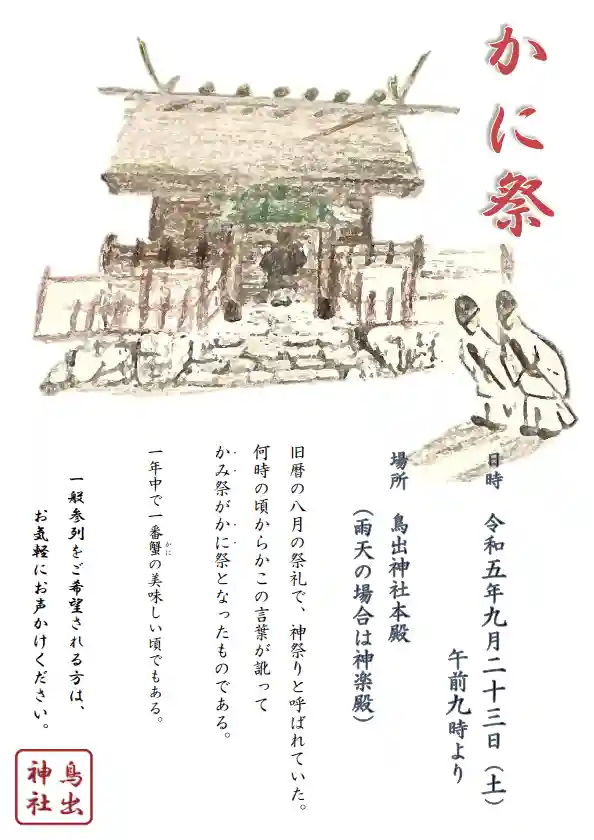 かに祭
日時 令和五年九月二十三日（土）
午前九時より
場所 鳥出神社本殿
（雨天の場合は神楽殿）
旧暦の八月の祭礼で、神祭りと呼ばれていた。
何時の頃からかこの言葉が訛って
かみ祭がかに祭となったものである。
一年中で一番蟹の美味しい頃でもある。
かに
一般参列をご希望される方は、
お気軽にお声かけください。
鳥出
神社